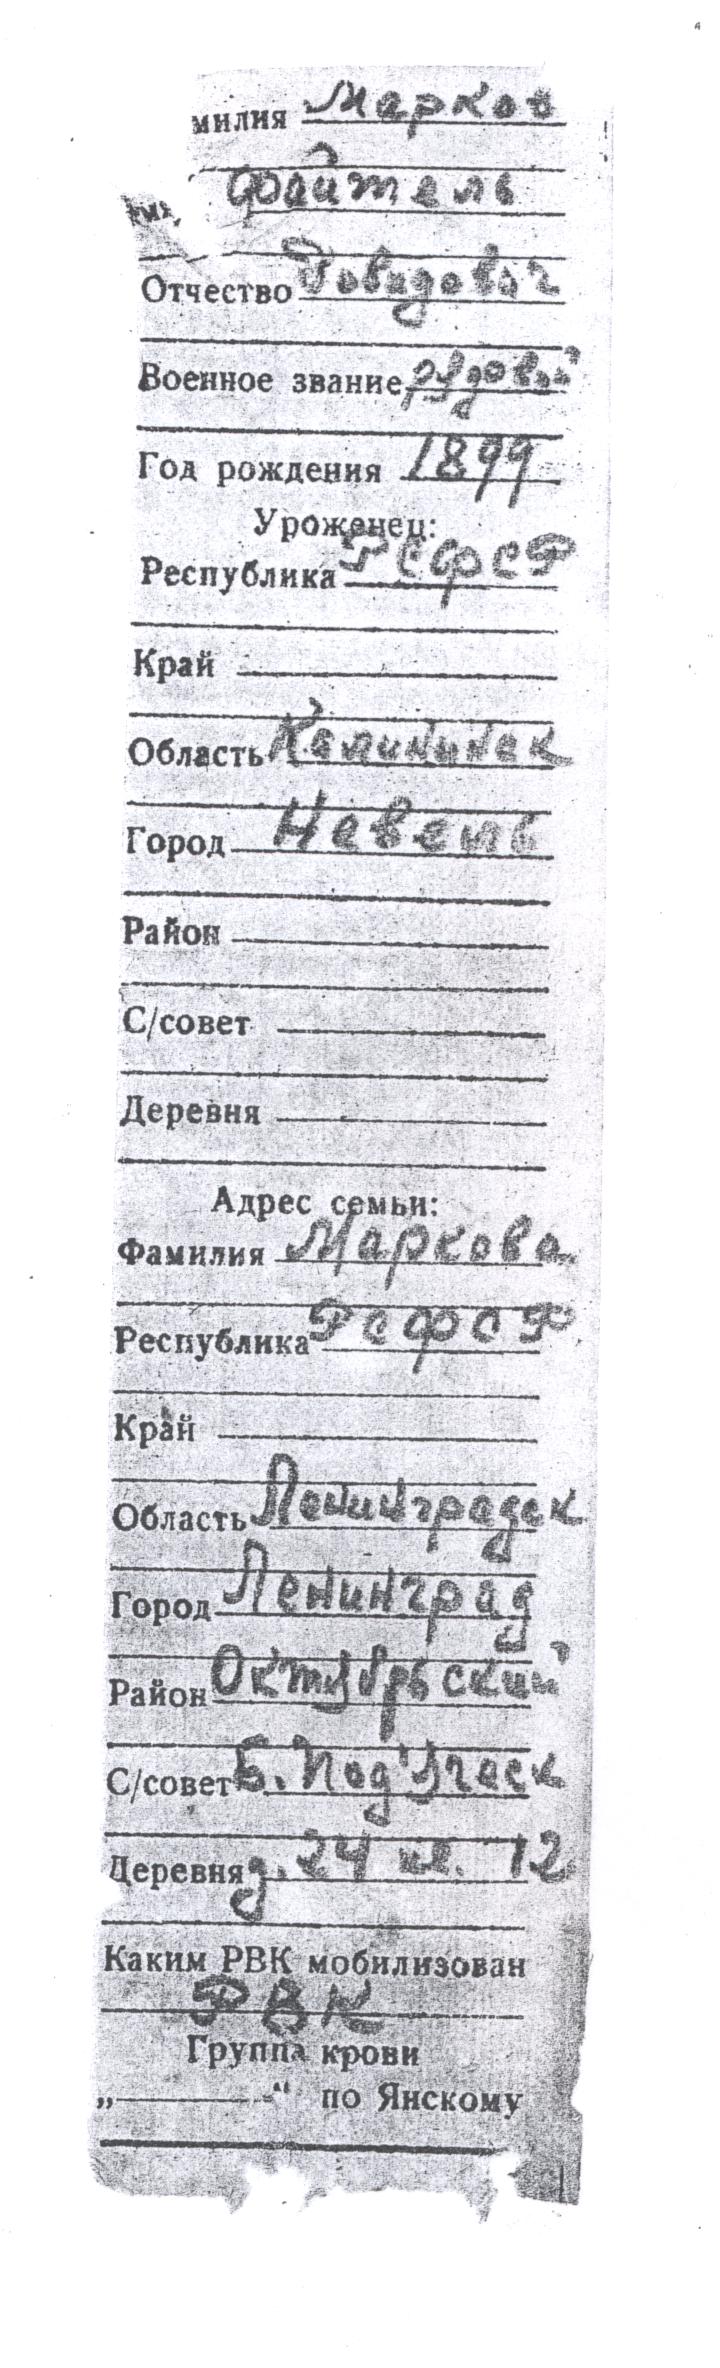 милия Марков
Имя Файтель
Отчество Довидович
Военное звание рядовой
Год рождения 1899
Уроженец:
Республика РСФСР
Край
Область Калининск
Город Невель
Район
С/совет
Деревня
Адрес семьи:
Фамилия Маркова
Республика РСФСР
Край
Область Ленинградск
Город Ленинград
Район Октябрьский
С/совет Б. Под'яческ
Деревня д. 24 кв. 12
Каким РВК мобилизован
РВК
Группа крови
„ “ по Янскому